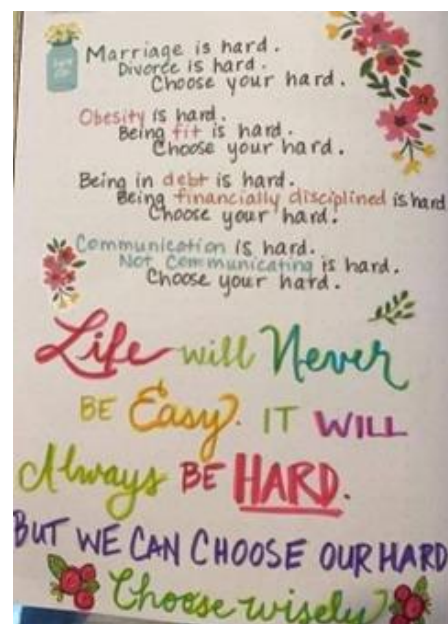 Marriage is hard.
Divorce is hard.
Choose your hard.
Obesity is hard.
Being fit is hard.
Choose your hard.
Being in debt is hard.
Being financially disciplined is hard
Choose your hard.
Communication is hard.
Not Communicating is hard.
Choose your hard.
Life will Never
BE Easy. IT WILL
Always BE HARD.
BUT WE CAN CHOOSE OUR HARD
Choose wisely